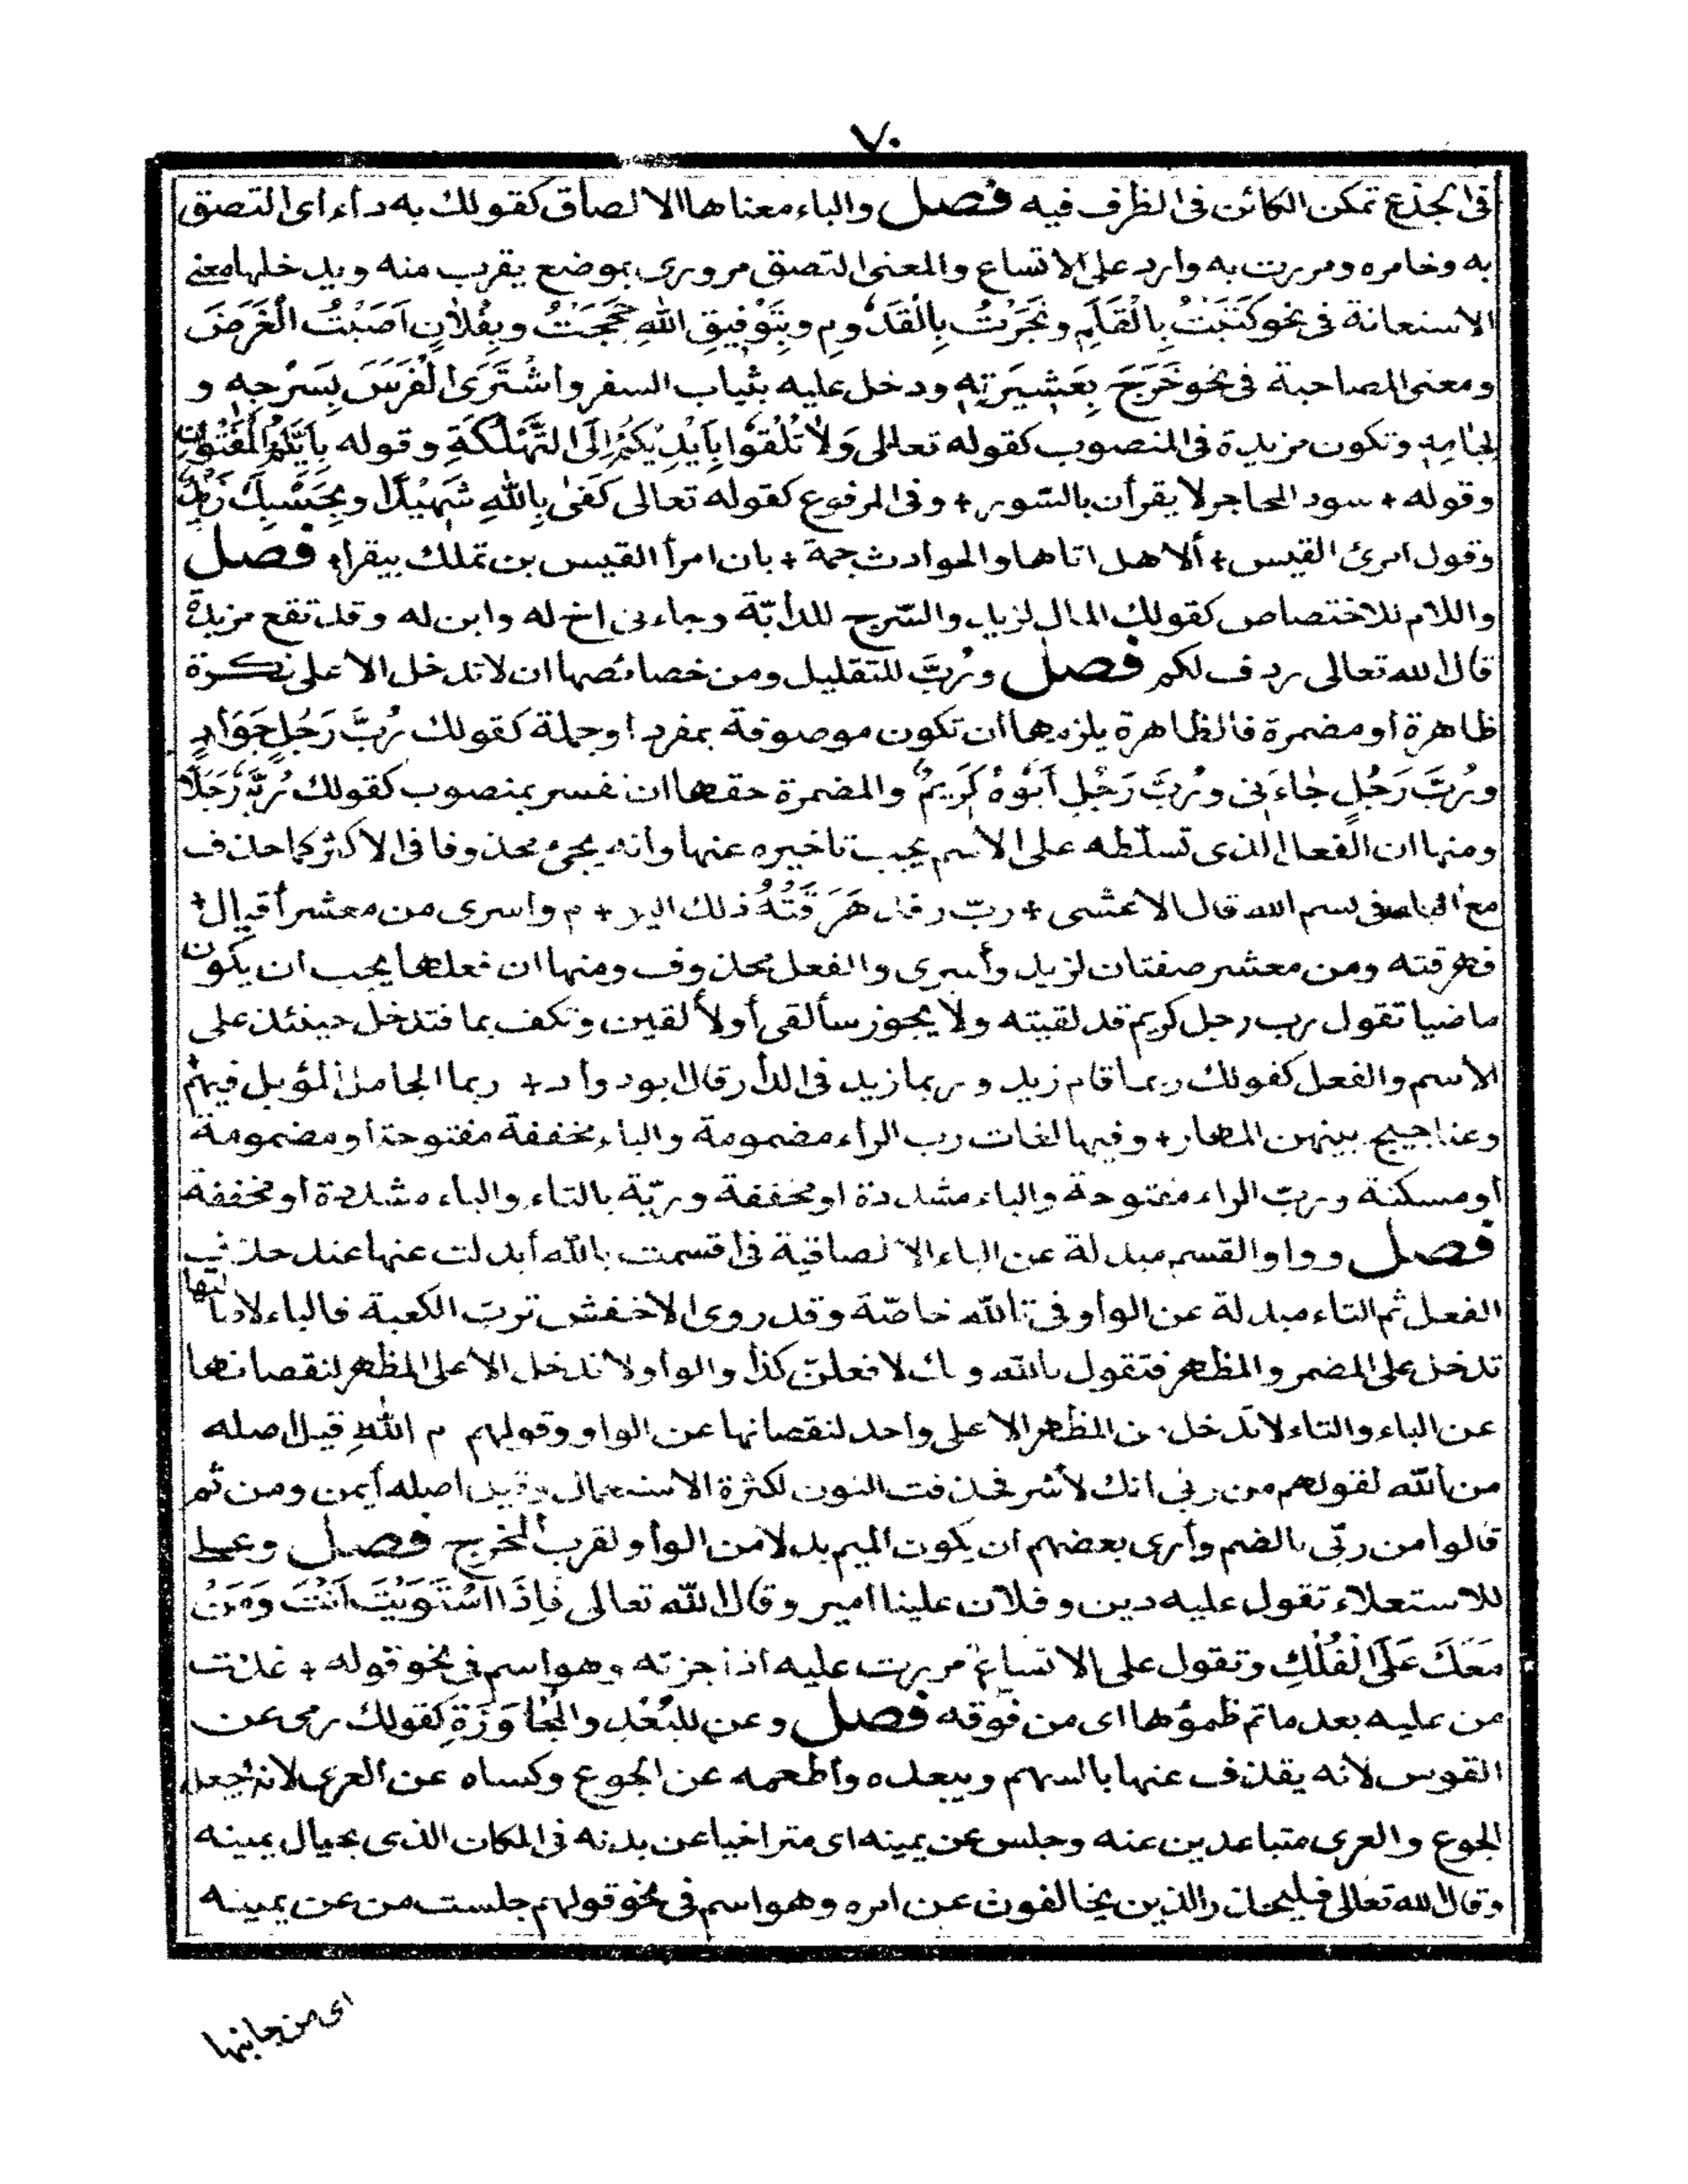 ٧٠
فى الجذع تمكن الكائن فى الظرف فيه فصل والباء معناها الالصاق كقولك به داء اى التصق
به وخامره ومررت به وارد على الاتساع والمعنى التصق مرورى بموضع يقرب منه ويدخلها معنى
الاستعانة فى نحو كَتَبْتُ بِالْقَلَمِ ونَجَرْتُ بِالْقَدُومِ وبِتَوْفِيقِ اللّٰهِ حَجَجْتُ وبِفُلَانٍ اَصَبْتُ الْغَرَضَ
ومعنى المصاحبة فى نحو خَرَجَ بِعَشِيرَتِهِ ودخل عليه بثياب السفر واشْتَرَى الْفَرَسَ بِسَرْجِهِ و
لِجَامِهِ وتكون مزيدة فى المنصوب كقوله تعالى وَلَا تُلْقُوا بِاَيْدِيكُمْ اِلَى التَّهْلُكَةِ وقوله بِاَيِّكُمُ الْمَفْتُونُ
وقوله + سود المحاجر لا يقرأن بالسّور + وفى المرفوع كقوله تعالى كَفَى بِاللّٰهِ شَهِيدًا وبِحَسْبِكَ زَيْدٌ
وقول امرئ القيس + ألا هل اتاها والحوادث جمة + بان امرأ القيس بن تملك بيقرا + فصل
واللام للاختصاص كقولك المال لزيد والسّرج للدابّة وجاءنى اخ له وابن له وقد تقع مزيدة
قال الله تعالى ردف لكم فصل ورُبَّ للتقليل ومن خصائصها ان لا تدخل الا على نكرة
ظاهرة او مضمرة فالظاهرة يلزمها ان تكون موصوفة بمفرد او جملة كقولك رُبَّ رَجُلٍ جَوَادٍ
ورُبَّ رَجُلٍ جَاءَنى ورُبَّ رَجُلٍ اَبُوهُ كَرِيمٌ والمضمرة حقها ان تفسر بمنصوب كقولك رُبَّهُ رَجُلًا
ومنها ان الفعل الذى تسلّطه على الاسم يجب تاخيره عنها وانه يجئ محذوفا فى الاكثر كما حذف
مع الباء فى بسم الله قال الاعشى + ربّ رفد هَرَقْتُهُ ذلك اليو + م واسرى من معشر أقيال +
فهرقته ومن معشر صفتان لزيد وأسرى والفعل محذوف ومنها ان فعلها يجب ان يكون
ماضيا تقول رب رجل كريم قد لقيته ولا يجوز سألقى أو لألقين وتكف بما فتدخل حينئذ على
الاسم والفعل كقولك ربما قام زيد وربما زيد فى الدار قال ابو دواد + ربما الجامل المؤبل فيهم +
وعناجيج بينهن المهار + وفيها لغات رب الراء مضمومة والباء مخففة مفتوحة أو مضمومة
أو مسكنة وربّ الراء مفتوحة والباء مشددة او مخففة وربّة بالتاء والباء مشددة أو مخففة
فصل وواو القسم مبدلة عن الباء الالصاقية فى أقسمت بالله أبدلت عنها عند حذف
الفعل ثم التاء مبدلة عن الواو فى تالله خاصّة وقد روى الاخفش ترب الكعبة فالباء لاصالتها
تدخل على المضمر والمظهر فتقول بالله وبك لا فعلن كذا والواو لا تدخل الا على المظهر لنقصانها
عن الباء والتاء لا تدخل من المظهر الا على واحد لنقصانها عن الواو وقولهم م اللّٰهِ قيل اصله
من الله لقولهم من ربى انك لأشر فحذفت النون لكثرة الاستعمال وقيل اصله أيمن ومن ثم
قالوا من ربّى بالضم وأرى بعضهم ان يكون الميم بدلا من الواو لقرب المخرج فصل وعلى
للاستعلاء تقول عليه دين وفلان علينا امير وقال الله تعالى فَاِذَا اسْتَوَيْتَ اَنْتَ وَمَنْ
مَعَكَ عَلَى الْفُلْكِ وتقول على الاتساع مررت عليه اذا جزته وهو اسم فى نحو قوله + غدت
من عليه بعد ما تم ظمؤها اى من فوقه فصل وعن للبُعْدِ والمُجَاوَزَةِ كقولك رمى عن
القوس لانه يقذف عنها بالسهم ويبعده وأطعمه عن الجوع وكساه عن العرى لانه يجعل
الجوع والعرى متباعدين عنه وجلس عن يمينه اى متراخيا عن بدنه فى المكان الذى بحيال يمينه
وقال الله تعالى فليحذر الذين يخالفون عن امره وهو اسم فى نحو قولهم جلست من عن يمينه
اى من جانبها